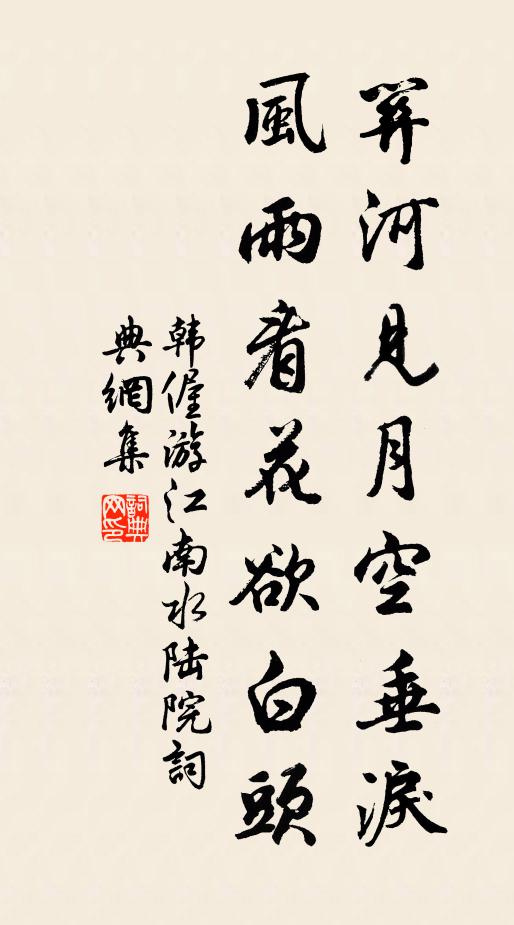 關河見月空垂淚
風雨看花欲白頭
韩偓游江南水陆院詞
典網集
詞典
网印